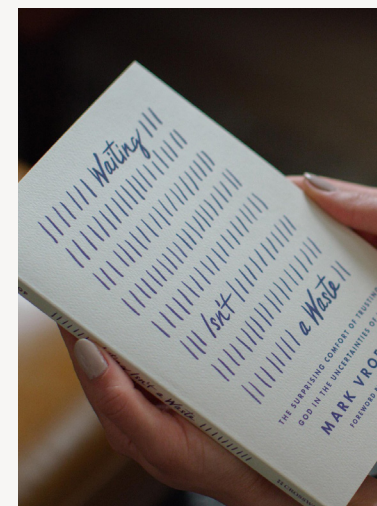 Waiting
Isn't
a Waste
THE SURPRISING COMFORT OF TRUSTING
GOD IN THE UNCERTAINTIES OF
MARK
FOREWORD
Isn't a Waste